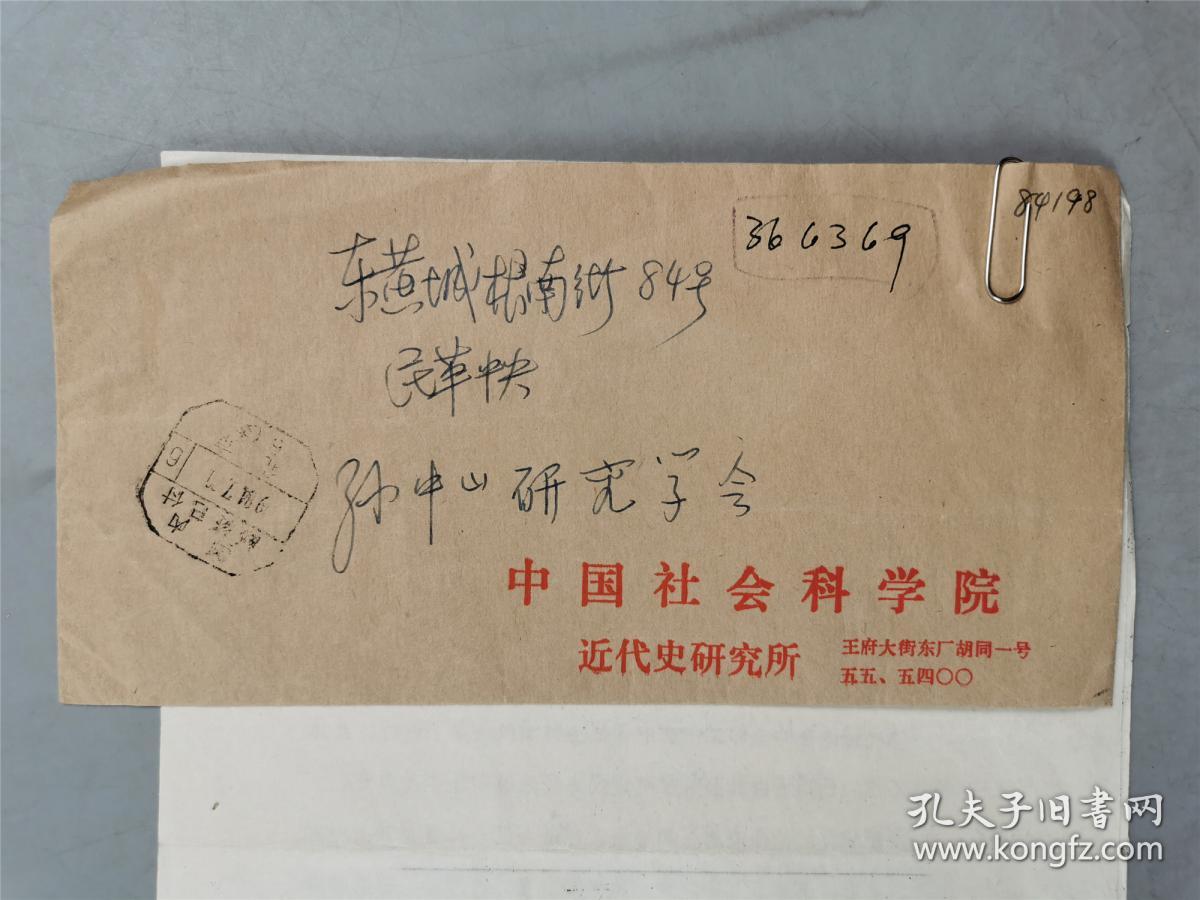 84198
366369
东黄城根南街84号
民革中央
孙中山研究学会
国内
邮资已付
北京
6
中国社会科学院
近代史研究所
王府大街东厂胡同一号
五五、五四〇〇
孔夫子旧书网
www.kongfz.com